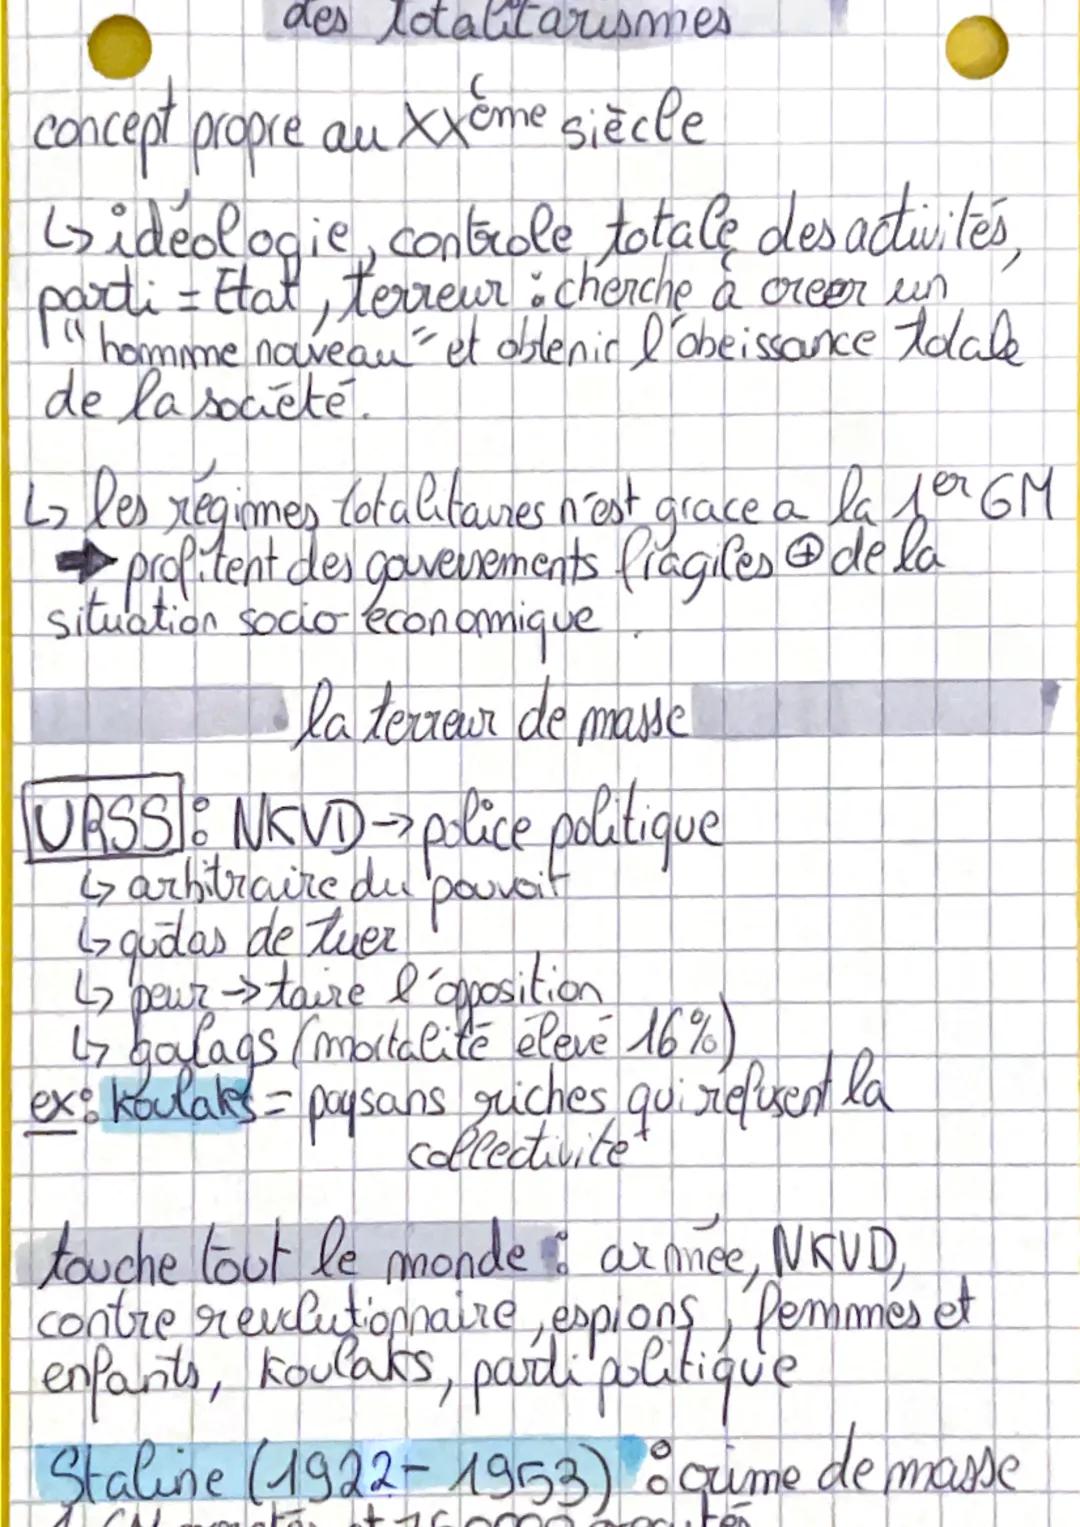 des totalitarismes
concept propre au XXème siècle
↳ idéologie, controle totale des activités,
parti = Etat, terreur : cherche à creer un
"homme nouveau" et obtenir l'obeissance totale
de la société.
↳ les régimes totalitaires n'est grace a la 1er GM
➡ profitent des gouvenements fragiles ⊕ de la
situation socio économique.
la terreur de masse
URSS : NKVD → police politique
↳ arbitraire du pouvoir
↳ qudas de tuer
↳ peur → taire l'opposition
↳ goulags (mortalité élevé 16%)
ex : koulaks = paysans riches qui refusent la
collectivité
touche tout le monde : armée, NKVD,
contre revolutionnaire, espions, femmes et
enfants, koulaks, parti politique
Staline (1922 - 1953) : crime de masse